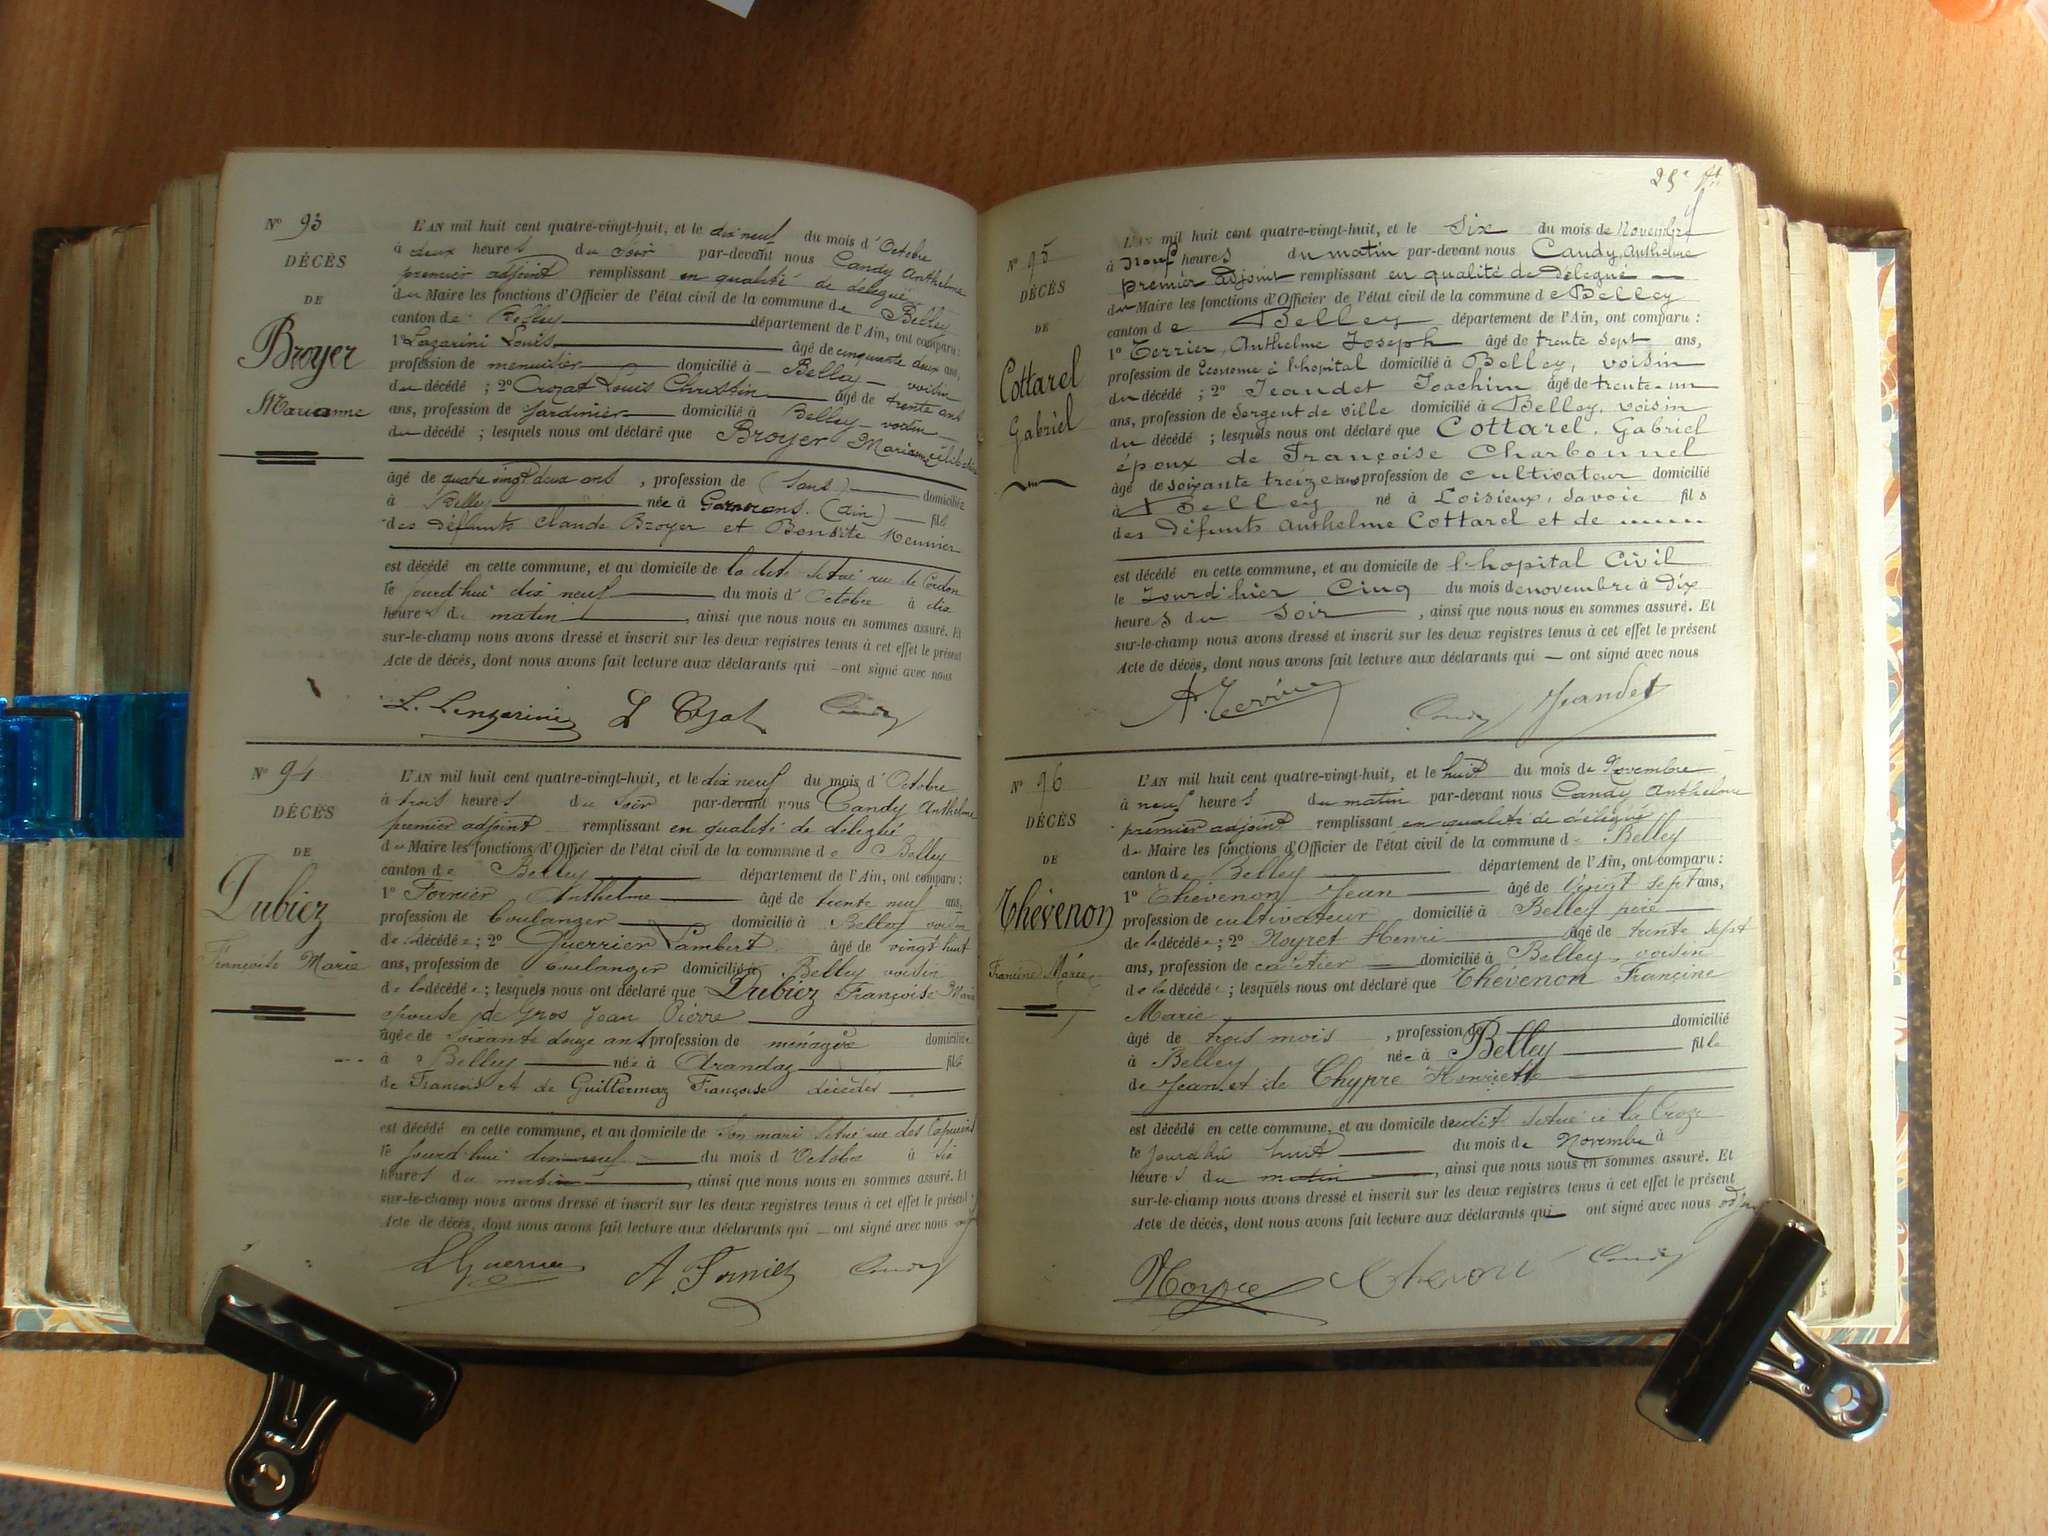 N° 93
DÉCÈS
DE
Broyer
Marianne
L'AN mil huit cent quatre-vingt-huit, et le dix neuf du mois d'Octobre
à deux heures du Soir par-devant nous Candy Anthelme
premier adjoint remplissant en qualité de délégué
du Maire les fonctions d'Officier de l'état civil de la commune de Belley
canton de Belley département de l'Ain, ont comparu :
1° Lazarini Louis âgé de cinquante deux ans,
profession de menuisier domicilié à Belley voisin
du décédé ; 2° Crozat Louis Christin âgé de trente ans
ans, profession de Jardinier domicilié à Belley voisin
du décédé ; lesquels nous ont déclaré que Broyer Marianne célibataire
âgé de quatre vingt deux ans , profession de (sans) domiciliée
à Belley née à (Ain) fille
des défunts Claude Broyer et Benoite Meunier
est décédé en cette commune, et au domicile de la dite situé rue de Cordon
le jourd'hui dix neuf du mois d'Octobre à dix
heures du matin , ainsi que nous nous en sommes assuré. Et
sur-le-champ nous avons dressé et inscrit sur les deux registres tenus à cet effet le présent
Acte de décès, dont nous avons fait lecture aux déclarants qui ont signé avec nous
L. Lenzarini L Crozat Candy
N° 94
DÉCÈS
DE
Dubiez
Françoise Marie
L'AN mil huit cent quatre-vingt-huit, et le dix neuf du mois d'Octobre
à trois heures du Soir par-devant nous Candy Anthelme
premier adjoint remplissant en qualité de délégué
du Maire les fonctions d'Officier de l'état civil de la commune de Belley
canton de Belley département de l'Ain, ont comparu :
1° Fornier Anthelme âgé de trente neuf ans,
profession de boulanger domicilié à Belley voisin
de la décédée ; 2° Guerrier Lambert âgé de vingt huit
ans, profession de boulanger domicilié à Belley voisin
de la décédée ; lesquels nous ont déclaré que Dubiez Françoise Marie
épouse de Gros Jean Pierre
âgée de soixante douze ans profession de ménagère domiciliée
à Belley née à Arandaz fille
de François et de Guillermaz Françoise décédés
est décédé en cette commune, et au domicile de Son mari situé rue des Capucins
le jourd'hui dix neuf du mois d'Octobre à six
heures du matin , ainsi que nous nous en sommes assuré. Et
sur-le-champ nous avons dressé et inscrit sur les deux registres tenus à cet effet le présent
Acte de décès, dont nous avons fait lecture aux déclarants qui ont signé avec nous
A. Fornier Candy
25e ft
N° 95
DÉCÈS
DE
Cottarel
Gabriel
L'AN mil huit cent quatre-vingt-huit, et le Six du mois de Novembre
à Neuf heures du matin par-devant nous Candy, Anthelme
premier Adjoint remplissant en qualité de Délégué
du Maire les fonctions d'Officier de l'état civil de la commune de Belley
canton de Belley département de l'Ain, ont comparu :
1° Terrier, Anthelme Joseph âgé de trente sept ans,
profession de Econome à l'hopital domicilié à Belley, voisin
du décédé ; 2° Jeandet Joachim âgé de trente-un
ans, profession de Sergent de ville domicilié à Belley, voisin
du décédé ; lesquels nous ont déclaré que Cottarel, Gabriel
époux de Françoise Charbonnel
âgé de soixante treize ans profession de cultivateur domicilié
à Belley né à Loisieux, Savoie fils
des défunts Anthelme Cottarel et de
est décédé en cette commune, et au domicile de l'hopital Civil
le Jourd'hier Cinq du mois de novembre à Dix
heures du Soir , ainsi que nous nous en sommes assuré. Et
sur-le-champ nous avons dressé et inscrit sur les deux registres tenus à cet effet le présent
Acte de décès, dont nous avons fait lecture aux déclarants qui ont signé avec nous
A. Terrier Candy Jeandet
N° 96
DÉCÈS
DE
Thévenon
Francine Marie
L'AN mil huit cent quatre-vingt-huit, et le huit du mois de Novembre
à neuf heures du matin par-devant nous Candy Anthelme
premier adjoint remplissant en qualité de délégué
du Maire les fonctions d'Officier de l'état civil de la commune de Belley
canton de Belley département de l'Ain, ont comparu :
1° Thévenon Jean âgé de vingt sept ans,
profession de cultivateur domicilié à Belley père
de la décédée ; 2° Noyret Henri âgé de trente sept
ans, profession de cafetier domicilié à Belley, voisin
de la décédée ; lesquels nous ont déclaré que Thévenon Francine
Marie
âgé de trois mois , profession de domicilié
à Belley née à Belley fille
de Jean et de Chypre Henriette
est décédé en cette commune, et au domicile dudit situé à la Croze
le jourd'hui huit du mois de Novembre à
heures du matin , ainsi que nous nous en sommes assuré. Et
sur-le-champ nous avons dressé et inscrit sur les deux registres tenus à cet effet le présent
Acte de décès, dont nous avons fait lecture aux déclarants qui ont signé avec nous
Candy